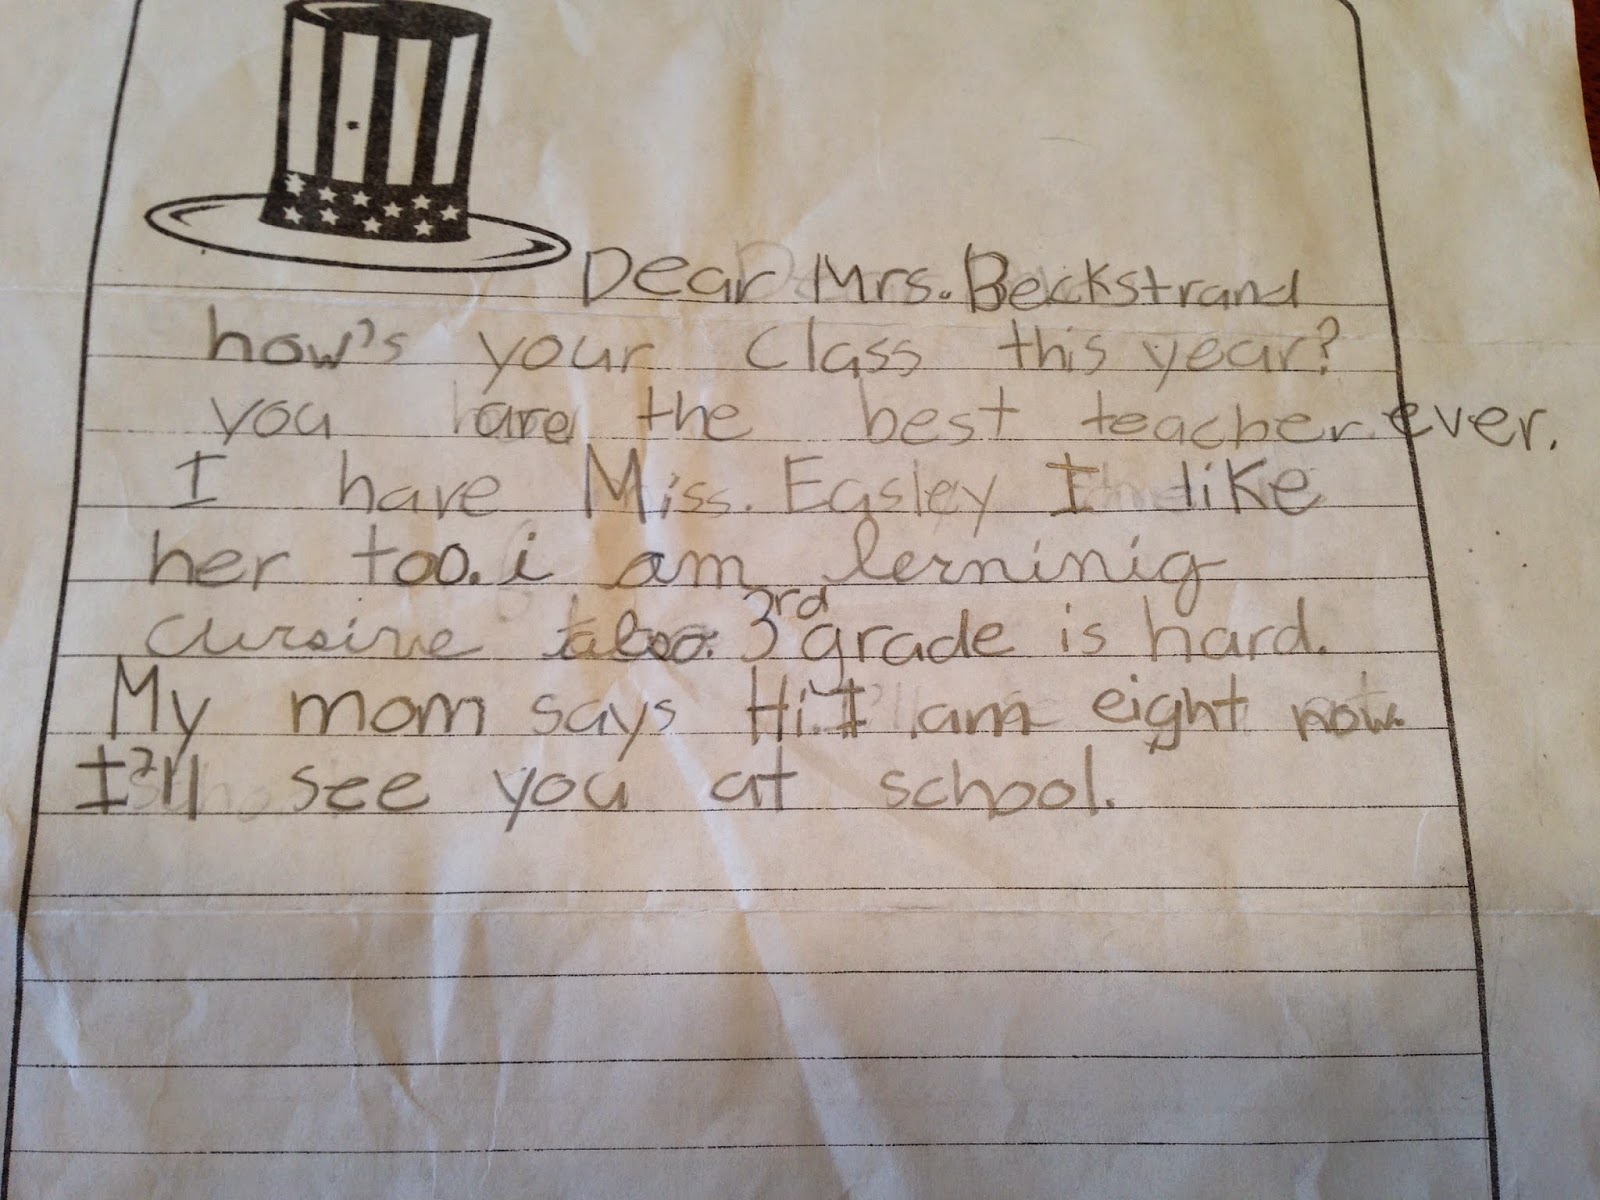 Dear Mrs. Beckstrand
how's your class this year?
you are the best teacher ever.
I have Miss. Easley I like
her too. i am lerninig
cursive also. 3rd grade is hard.
My mom says Hi. I am eight now.
I'll see you at school.